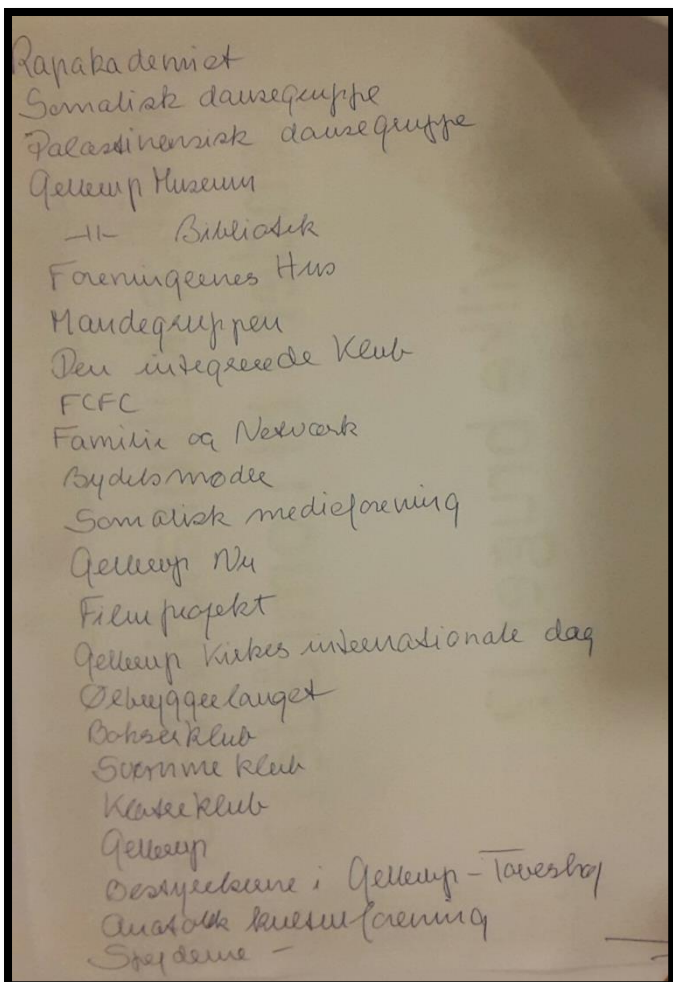 Rapakademiet
Somalisk dansegruppe
Palæstinensisk dansegruppe
Gellerup Museum
-11- Bibliotek
Foreningernes Hus
Mandegruppen
Den integrerede Klub
FCFC
Familie og Netværk
Bydelsmødre
Somalisk medieforening
Gellerup Nu
Filmprojekt
Gellerup Kirkes internationale dag
Ølbryggerlauget
Bokseklub
Svømmeklub
Klatreklub
Gellerup
Bestyrelserne i Gellerup - Toveshøj
Anatolsk kulturforening
Spejderne -